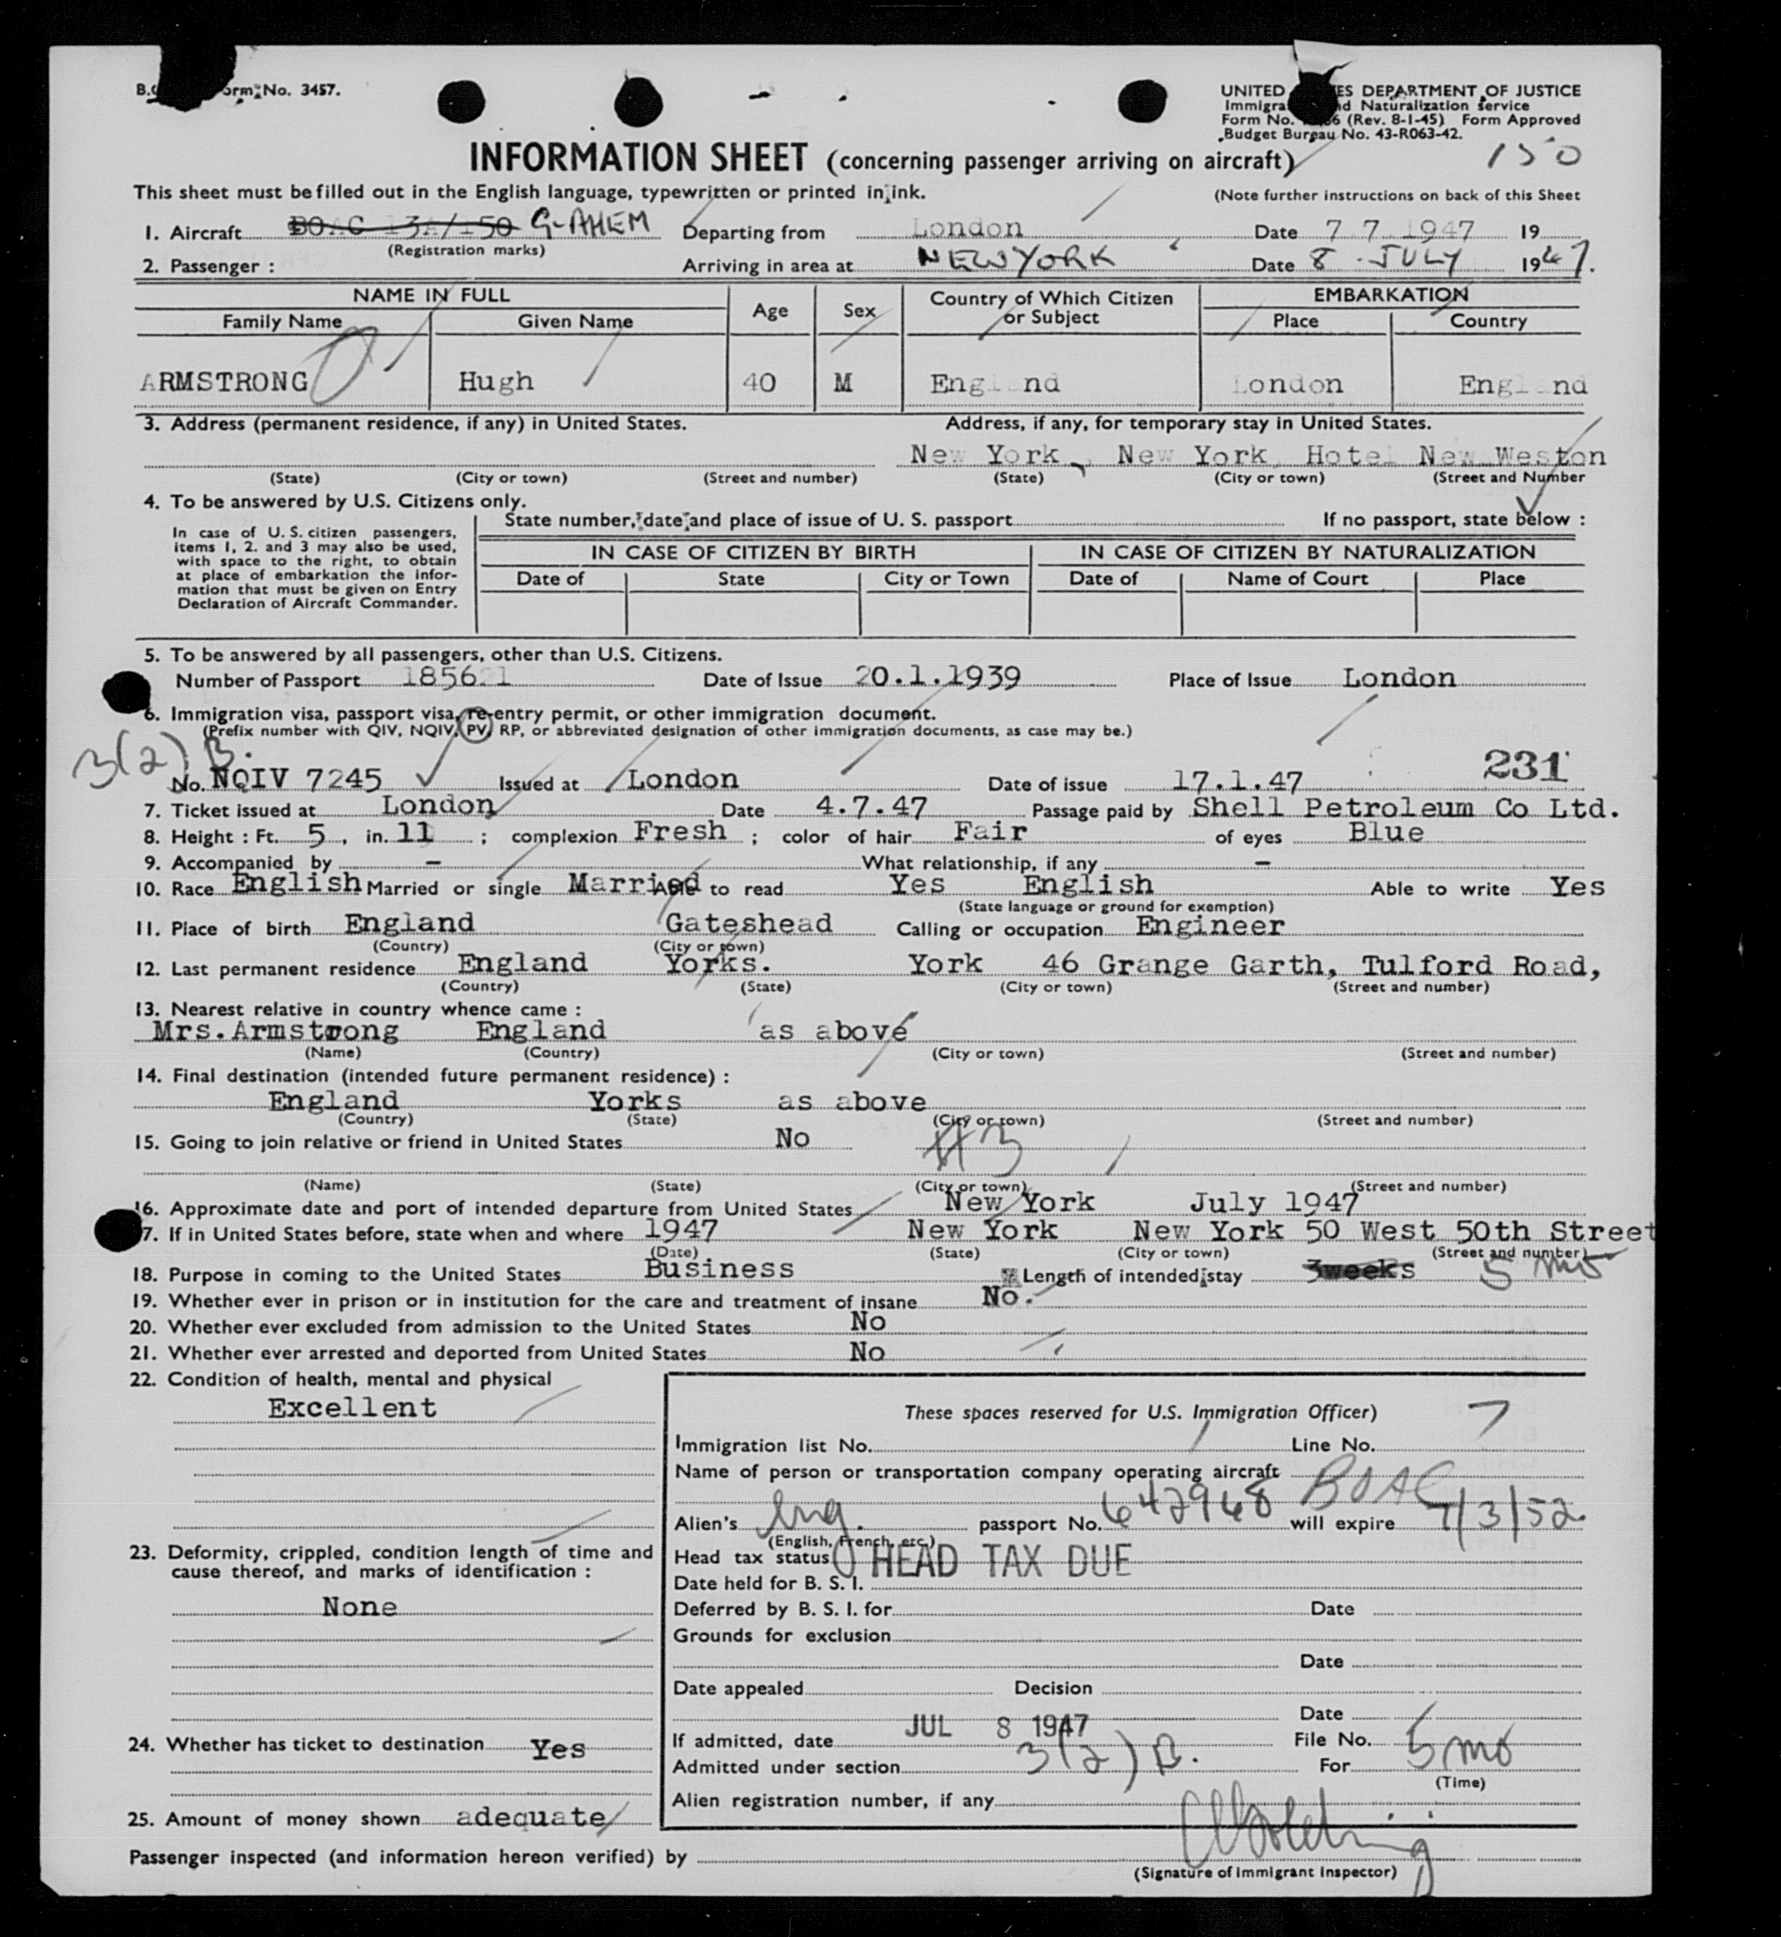 Form No. 3457.
UNITED STATES DEPARTMENT OF JUSTICE
Immigration and Naturalization Service
Form No. (Rev. 8-1-45) Form Approved
Budget Bureau No. 43-R063-42.
150
INFORMATION SHEET (concerning passenger arriving on aircraft)
This sheet must be filled out in the English language, typewritten or printed in ink. (Note further instructions on back of this Sheet
1. Aircraft BOAC 13A/150 G-AHEM Departing from London Date 7 7 1947 19
(Registration marks)
2. Passenger : Arriving in area at NEW YORK Date 8 JULY 1947.
NAME IN FULL Age Sex Country of Which Citizen or Subject EMBARKATION
Family Name Given Name Place Country
ARMSTRONG Hugh 40 M England London England
3. Address (permanent residence, if any) in United States. Address, if any, for temporary stay in United States.
New York, New York, Hotel New Weston
(State) (City or town) (Street and number) (State) (City or town) (Street and Number
4. To be answered by U.S. Citizens only.
State number, date and place of issue of U. S. passport If no passport, state below :
In case of U. S. citizen passengers, items 1, 2. and 3 may also be used, with space to the right, to obtain at place of embarkation the information that must be given on Entry Declaration of Aircraft Commander.
IN CASE OF CITIZEN BY BIRTH IN CASE OF CITIZEN BY NATURALIZATION
Date of State City or Town Date of Name of Court Place
5. To be answered by all passengers, other than U.S. Citizens.
Number of Passport Date of Issue 20.1.1939 Place of Issue London
6. Immigration visa, passport visa, re-entry permit, or other immigration document.
(Prefix number with QIV, NQIV, PV, RP, or abbreviated designation of other immigration documents, as case may be.)
3(2) B.
231
No. NQIV 7245 Issued at London Date of issue 17.1.47
7. Ticket issued at London Date 4.7.47 Passage paid by Shell Petroleum Co Ltd.
8. Height : Ft. 5, in. 11 ; complexion Fresh ; color of hair Fair of eyes Blue
9. Accompanied by – What relationship, if any –
10. Race English Married or single Married Able to read Yes English Able to write Yes
(State language or ground for exemption)
11. Place of birth England Gateshead Calling or occupation Engineer
(Country) (City or town)
12. Last permanent residence England Yorks. York 46 Grange Garth, Tulford Road,
(Country) (State) (City or town) (Street and number)
13. Nearest relative in country whence came :
Mrs. Armstrong England as above
(Name) (Country) (City or town) (Street and number)
14. Final destination (intended future permanent residence) :
England Yorks as above
(Country) (State) (City or town) (Street and number)
15. Going to join relative or friend in United States No
(Name) (State) (City or town) (Street and number)
16. Approximate date and port of intended departure from United States New York July 1947
17. If in United States before, state when and where 1947 New York New York 50 West 50th Street
(Date) (State) (City or town) (Street and number)
18. Purpose in coming to the United States Business Length of intended stay 3weeks 5 mos
19. Whether ever in prison or in institution for the care and treatment of insane No.
20. Whether ever excluded from admission to the United States No
21. Whether ever arrested and deported from United States No
22. Condition of health, mental and physical
Excellent
These spaces reserved for U.S. Immigration Officer)
Immigration list No. Line No. 7
Name of person or transportation company operating aircraft BOAC
Alien's Eng. passport No. 642968 will expire 7/3/52
(English, French, etc.)
23. Deformity, crippled, condition length of time and cause thereof, and marks of identification :
None
Head tax status HEAD TAX DUE
Date held for B. S. I.
Deferred by B. S. I. for Date
Grounds for exclusion
Date
Date appealed Decision
Date
24. Whether has ticket to destination Yes
If admitted, date JUL 8 1947 File No.
Admitted under section 3(2) B. For 5 mo
(Time)
Alien registration number, if any
25. Amount of money shown adequate
Passenger inspected (and information hereon verified) by
(Signature of Immigrant Inspector)